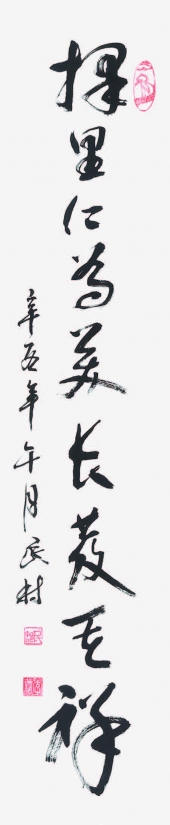 择里仁为美长發其祥
辛年午月民村